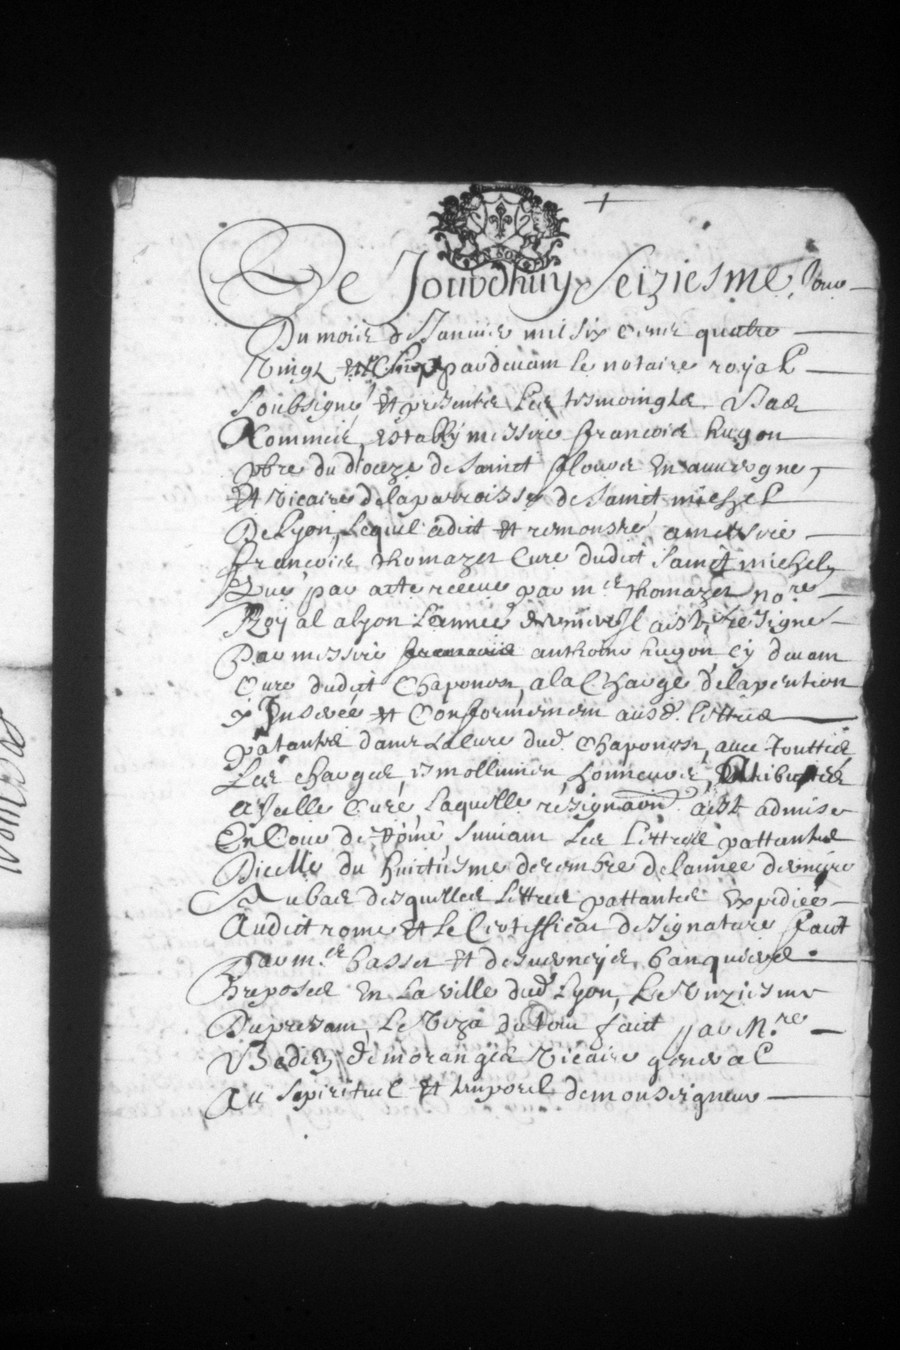 Ce Jourdhuy Seiziesme Jour
Du mois de Januier mil six cens quatre
Vingt par deuant le notaire royal
Soubsigné et presentz les tesmoingtz bas
Nommés, estably messire francois hugon
pbre du dioceze de sainct flour en auuergne
Et vicaire de la parroisse de sainct michel
De Lyon, Lequel a dict et remonstré a messire
francois thomazet Curé dudict sainct michel
Que par acte receu par m.re thomazet no.re
Royal a lyon L'année derniere Il a esté resigné
Par messire anthoine hugon cy deuant
Curé dudict Chaponost, a la Charge de la pention
y Inserée et Conformement ausd. lettres
patantes dame La Cure dud. Chaponost, auec Touttes
Les charges esmollumens honneurs,
a Icelle Cure Laquelle résignaon a esté admise
En Cour de Rome Suiuant les lettres pattantes
Dicelle du huictiesme decembre de lannee derniere
Au bas desquelles lettres pattantes expediées
Audict rome Et le Certifficat de Signature faict
Par m.re basset et banquiers
Preposes En La ville dud. Lyon, Le Unziesme
Du present, Le Viza du Tout faict par M.re
Bedien de morangis Vicaire general
Au Spirituel Et temporel de monseigneur